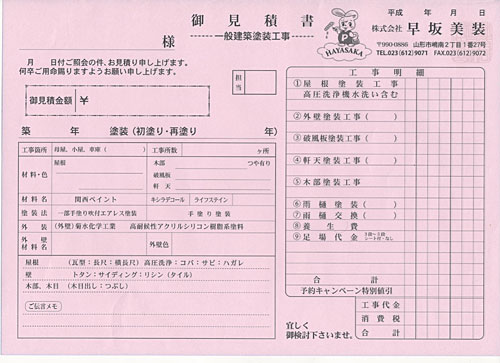 御見積書
一般建築塗装工事
様
HAYASAKA
平成　年　月　日
株式会社 早坂美装
〒990-0886 山形市嶋南2丁目1番27号
TEL.023(612)9071 FAX.023(612)9072
月　日付ご照会の件、お見積り申し上げます。
何卒ご用命賜りますようお願い申し上げます。
担当
御見積金額 ¥
築　年　塗装(初塗り・再塗り　年)
工事箇所 母屋、小屋、車庫(　) 工事所数 ヶ所
材料・色 屋根 木部 つや有り
破風板
軒天
材料名 関西ペイント キシラデコール ライフステイン
塗装法 一部手塗り吹付エアレス塗装 手塗り塗装
外装 (外壁)菊水化学工業 高耐候性アクリルシリコン樹脂系塗料
外壁材料名 外壁色
屋根 (瓦型:長尺:横長尺)高圧洗浄:コバ・サビ:ハガレ
壁 トタン:サイディング:リシン(タイル)
木部、木目(木目出し:つぶし)
ご伝言メモ
工事明細
①屋根塗装工事
高圧洗浄機水洗い含む
②外壁塗装工事(　)
③破風板塗装工事(　)
④軒天塗装工事(　)
⑤木部塗装工事
⑥雨樋塗装(　)
⑦雨樋交換(　)
⑧養生費
⑨足場代金 2段〜3段 シート付・なし
合計
予約キャンペーン特別値引
宜しく
御検討下さいませ。
工事代金
消費税
合計